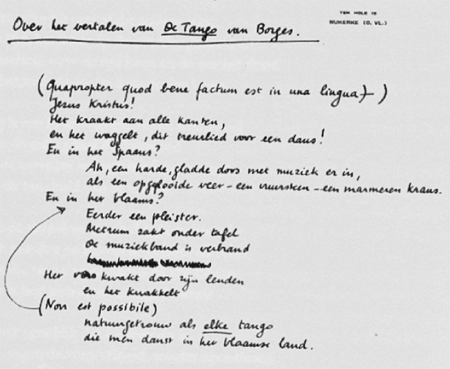 NUKERKE (O. VL.)
Over het vertalen van De Tango van Borges.
(Quapropter quod bene factum est in una lingua – )
Jesus Kristus!
Het kraakt aan alle kanten,
en het waggelt, dit treurlied voor een dans!
En in het Spaans?
Ah, een harde, gladde doos met muziek er in,
als een veer – een vuursteen – een marmeren krans.
En in het Vlaams?
Eerder een pleister.
zakt onder tafel
De muziekband is verbrand
Het kwakt door zijn lenden
en het knakkelt
(Non est possibile)
natuurgetrouw als elke tango
die men danst in het Vlaamse land.